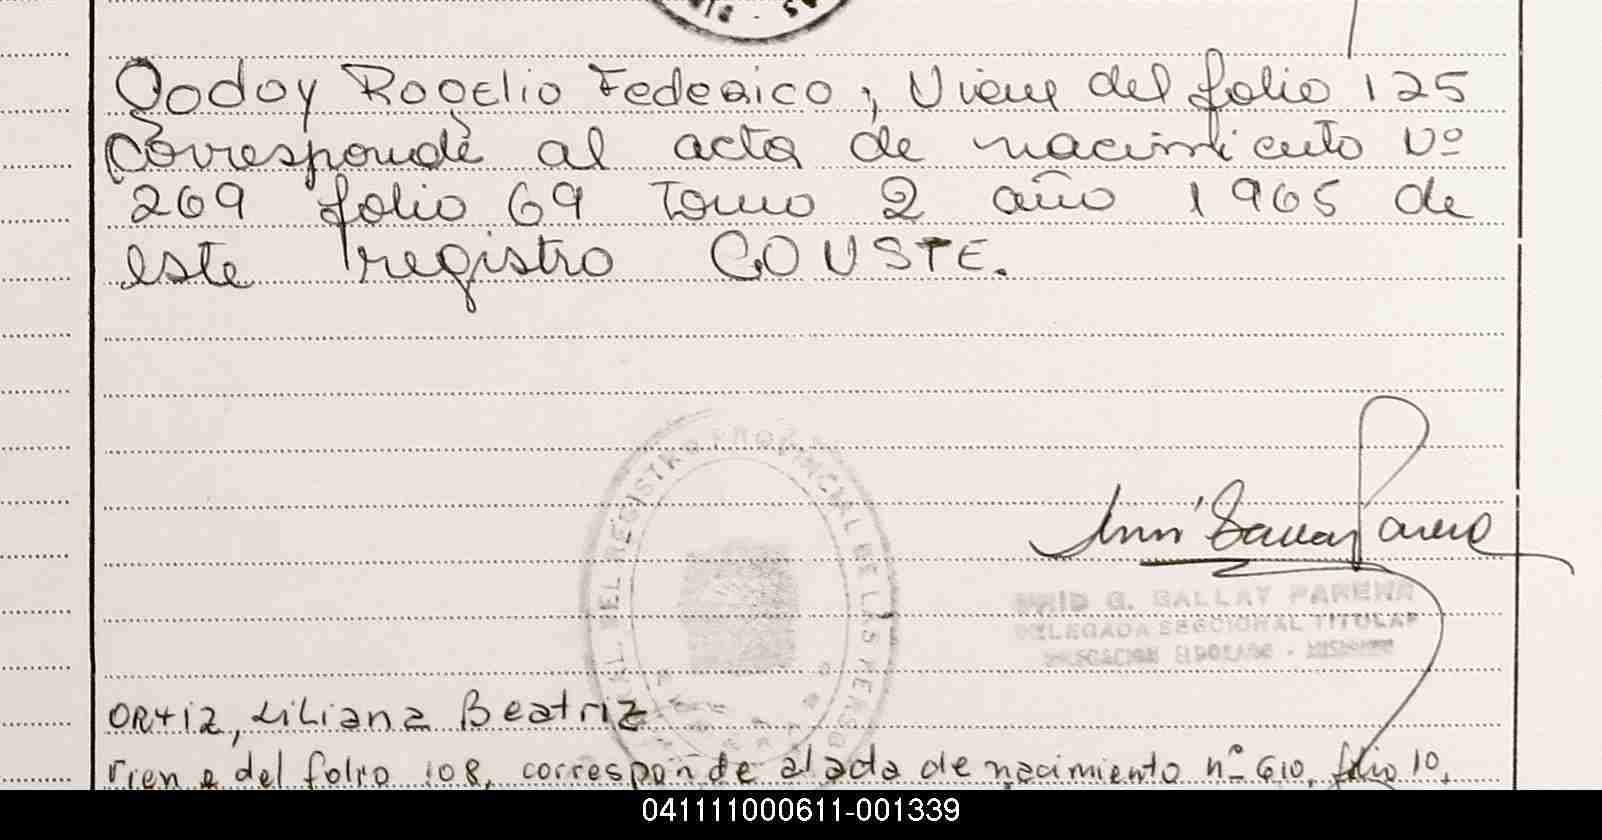 Godoy Rogelio Federico, Viene del folio 125
Corresponde al acta de nacimiento Nº
269 folio 69 Tomo 2 año 1965 de
este registro CONSTE.
DEL REGISTRO PROVINCIAL DE LAS PERSO
G. GALLAY PAREHR
DELEGADA SECCIONAL TITULAR
DELEGACION ELDORADO - MISIONES
ORtiz, Liliana Beatriz
Viene del folio 108, corresponde al acta de nacimiento nº 610, folio 10,
041111000611-001339